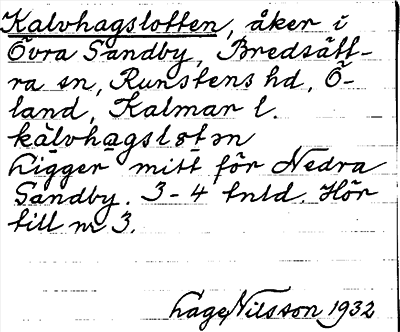 Kalvhagslotten, åker i
Övra Sandby, Bredsätt-
ra sn, Runstens hd, Ö-
land, Kalmar l.
kàlvhagslotən
Ligger mitt för Nedra
Sandby. 3-4 tnld. Hör
till nr 3.
Lage Nilsson 1932